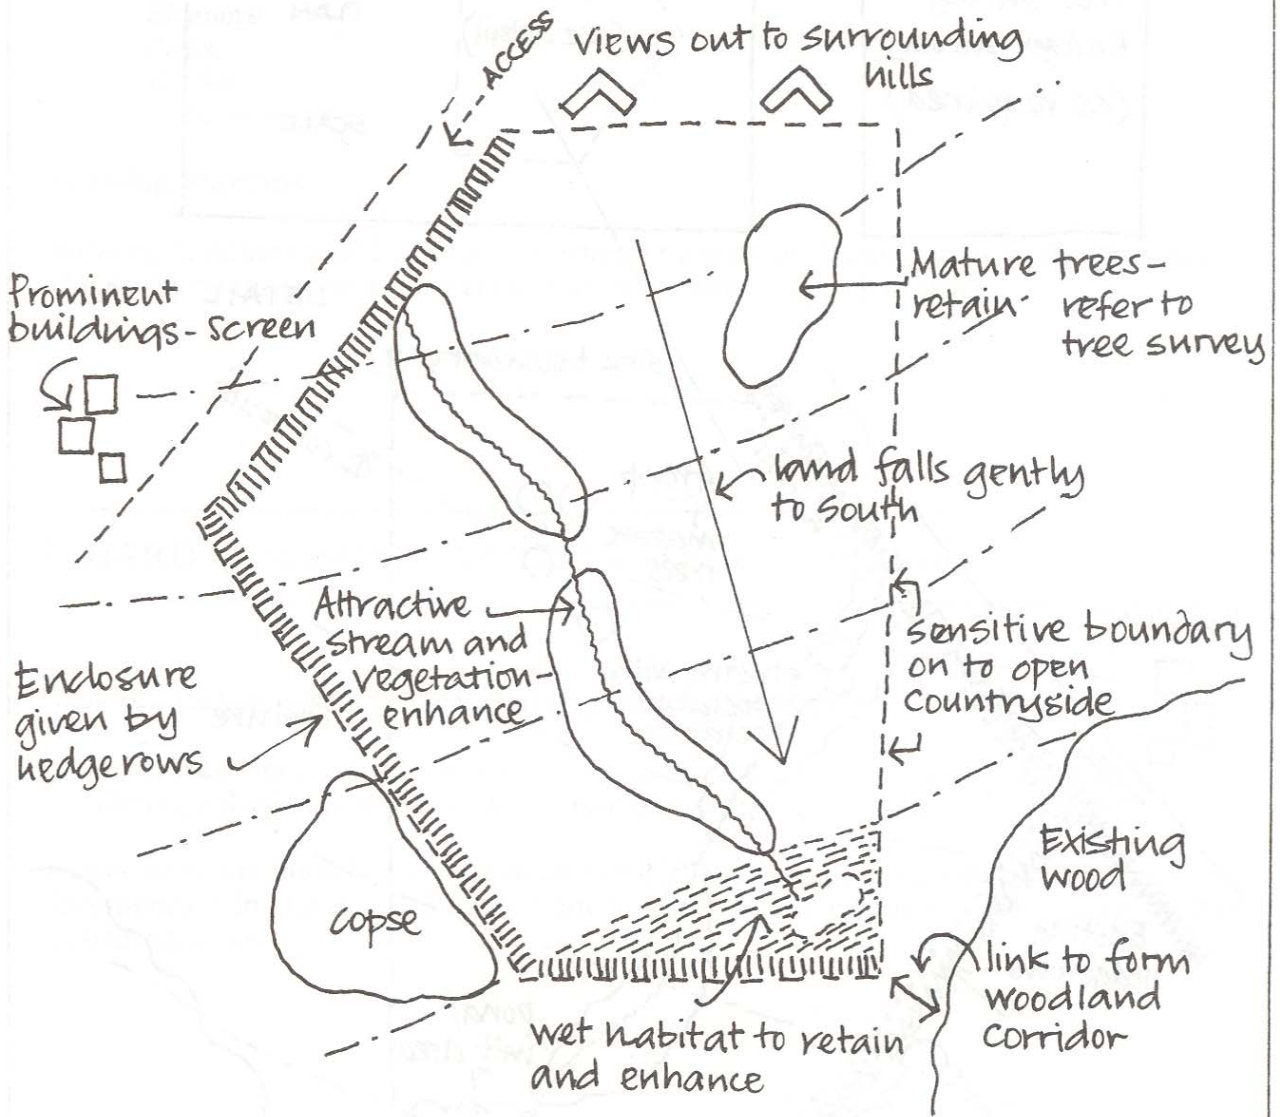 ACCESS
Views out to surrounding
hills
Prominent
buildings - screen
Mature trees -
retain - refer to
tree survey
land falls gently
to south
Attractive
stream and
vegetation -
enhance
sensitive boundary
on to open
countryside
Enclosure
given by
hedgerows
Existing
wood
copse
link to form
woodland
corridor
wet habitat to retain
and enhance